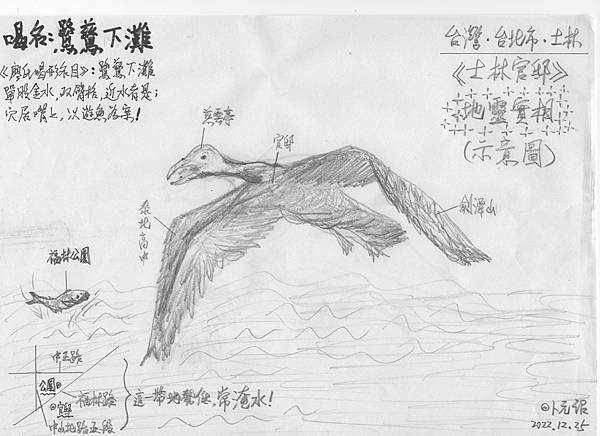 喝名:鷺鷥下灘
鷺鷥下灘
單眼金水,双臂拾,近水有是;
穴居嘴上,以遊魚為案!
台灣·台北市·士林
《士林官邸》
地靈實相
(示意圖)
慈雲亭
官邸
劍潭山
泰北高中
福林公園
中正路
公園
官邸
福林路
中山北路五段
這一帶地勢低,常淹水!
2022.12.25